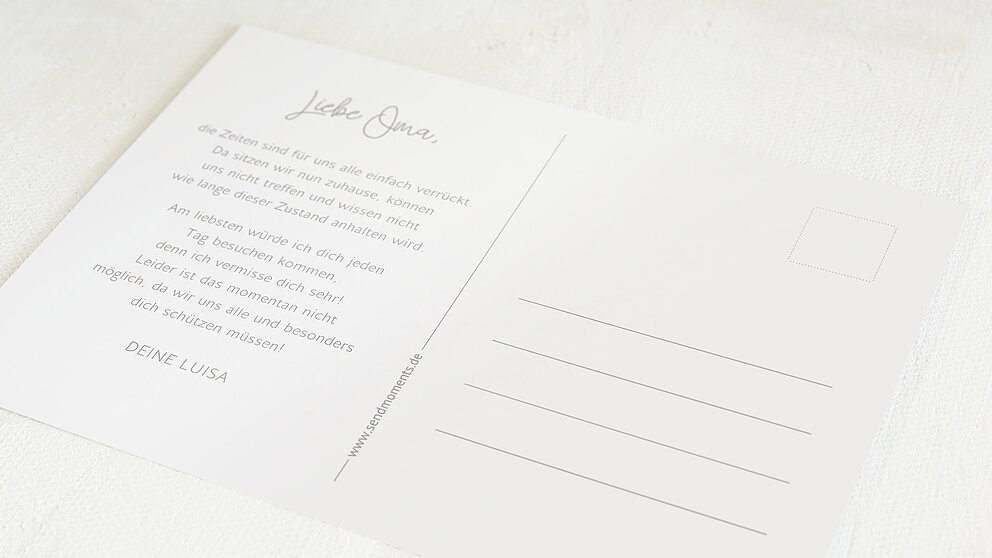 Liebe Oma,
die Zeiten sind für uns alle einfach verrückt.
Da sitzen wir nun zuhause, können
uns nicht treffen und wissen nicht
wie lange dieser Zustand anhalten wird.
Am liebsten würde ich dich jeden
Tag besuchen kommen,
denn ich vermisse dich sehr!
Leider ist das momentan nicht
möglich, da wir uns alle und besonders
dich schützen müssen!
DEINE LUISA
www.sendmoments.de